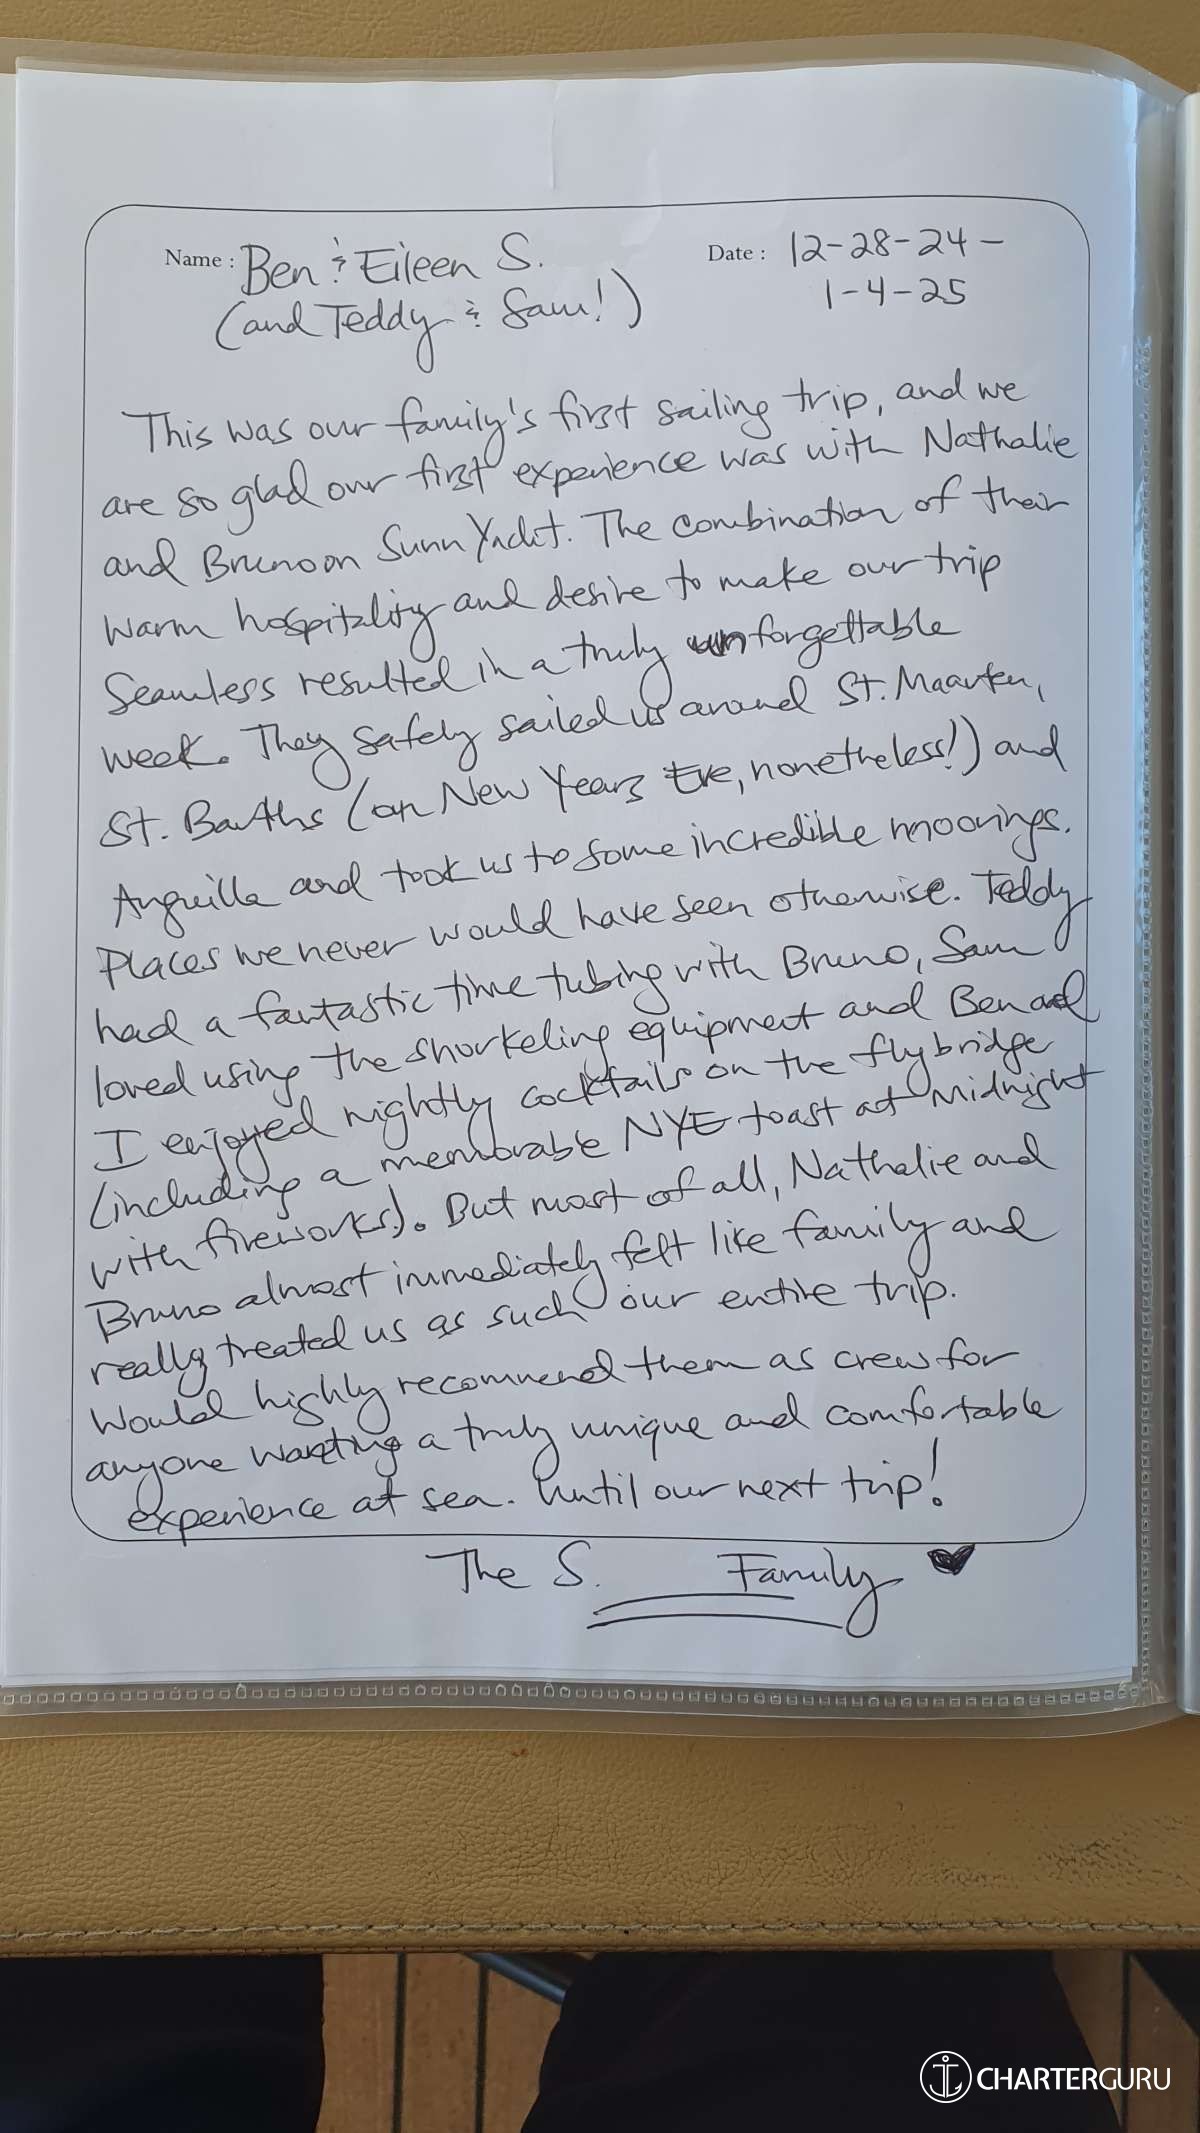 Name : Ben & Eileen S.
(and Teddy & Sam!)
Date : 12-28-24 –
1-4-25
This was our family's first sailing trip, and we
are so glad our first experience was with Nathalie
and Bruno on Sunn Yacht. The combination of their
warm hospitality and desire to make our trip
seamless resulted in a truly unforgettable
week. They safely sailed us around St. Maarten,
St. Barths (on New Years Eve, nonetheless!) and
Anguilla and took us to some incredible moorings.
Places we never would have seen otherwise. Teddy
had a fantastic time tubing with Bruno, Sam
loved using the snorkeling equipment and Ben and
I enjoyed nightly cocktails on the flybridge
(including a memorable NYE toast at Midnight
with fireworks). But most of all, Nathalie and
Bruno almost immediately felt like family and
really treated us as such our entire trip.
Would highly recommend them as crew for
anyone wanting a truly unique and comfortable
experience at sea. Until our next trip!
The S. Family ♥
CHARTERGURU